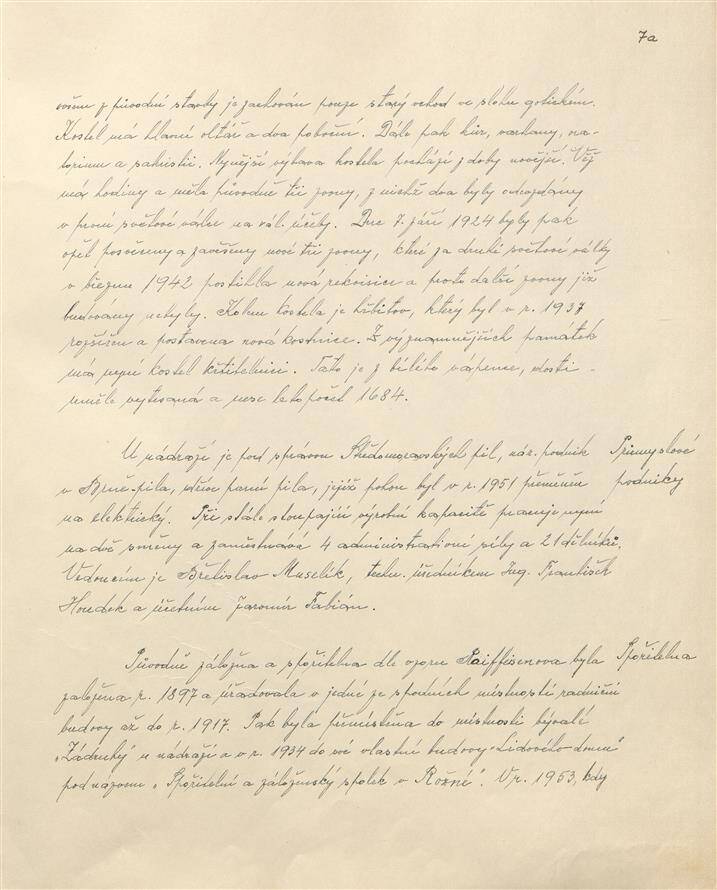 7a
ovšem z původní stavby je zachován pouze starý vchod ve slohu gotickém.
Kostel má hlavní oltář a dva poboční. Dále pak kůr, varhany, ora-
torium a sakristii. Nynější výbava kostela pochází z doby novější. Věž
má hodiny a měla původně tři zvony, z nichž dva byly odevzdány
v první světové válce na vál. účely. Dne 7. září 1924 byly pak
opět posvěceny a zavěšeny nové tři zvony, které za druhé světové války
v březnu 1942 postihla nová rekvisice a proto další zvony již
budovány nebyly. Kolem kostela je hřbitov, který byl v r. 1937
rozšířen a postavena nová kostnice. Z významnějších památek
má nyní kostel křtitelnici. Tato je z bílého vápence, dosti
uměle vytesaná a nese letopočet 1684.
U nádraží je pod správou Středomoravských pil, nár. podnik Průmyslové
v Brně pila, dříve parní pila, jejíž pohon byl v r. 1951 přeměněn podniky
na elektrický. Při stále stoupající výrobní kapacitě pracuje nyní
na dvě směny a zaměstnává 4 administrativní síly a 21 dělníků.
Vedoucím je Břetislav Muselík, techn. úředníkem Ing. František
Houdek a účetním Jaromír Fabián.
Původně záložna a spořitelna dle vzoru Raiffisenova byla Spořitelna
založena r. 1897 a úřadovala v jedné ze spodních místností radniční
budovy až do r. 1917. Pak byla přemístěna do místnosti bývalé
„Zádruhy" u nádraží a v r. 1934 do své vlastní budovy „Lidového domu"
pod názvem „Spořitelní a záloženský spolek v Rožné". V r. 1953, kdy